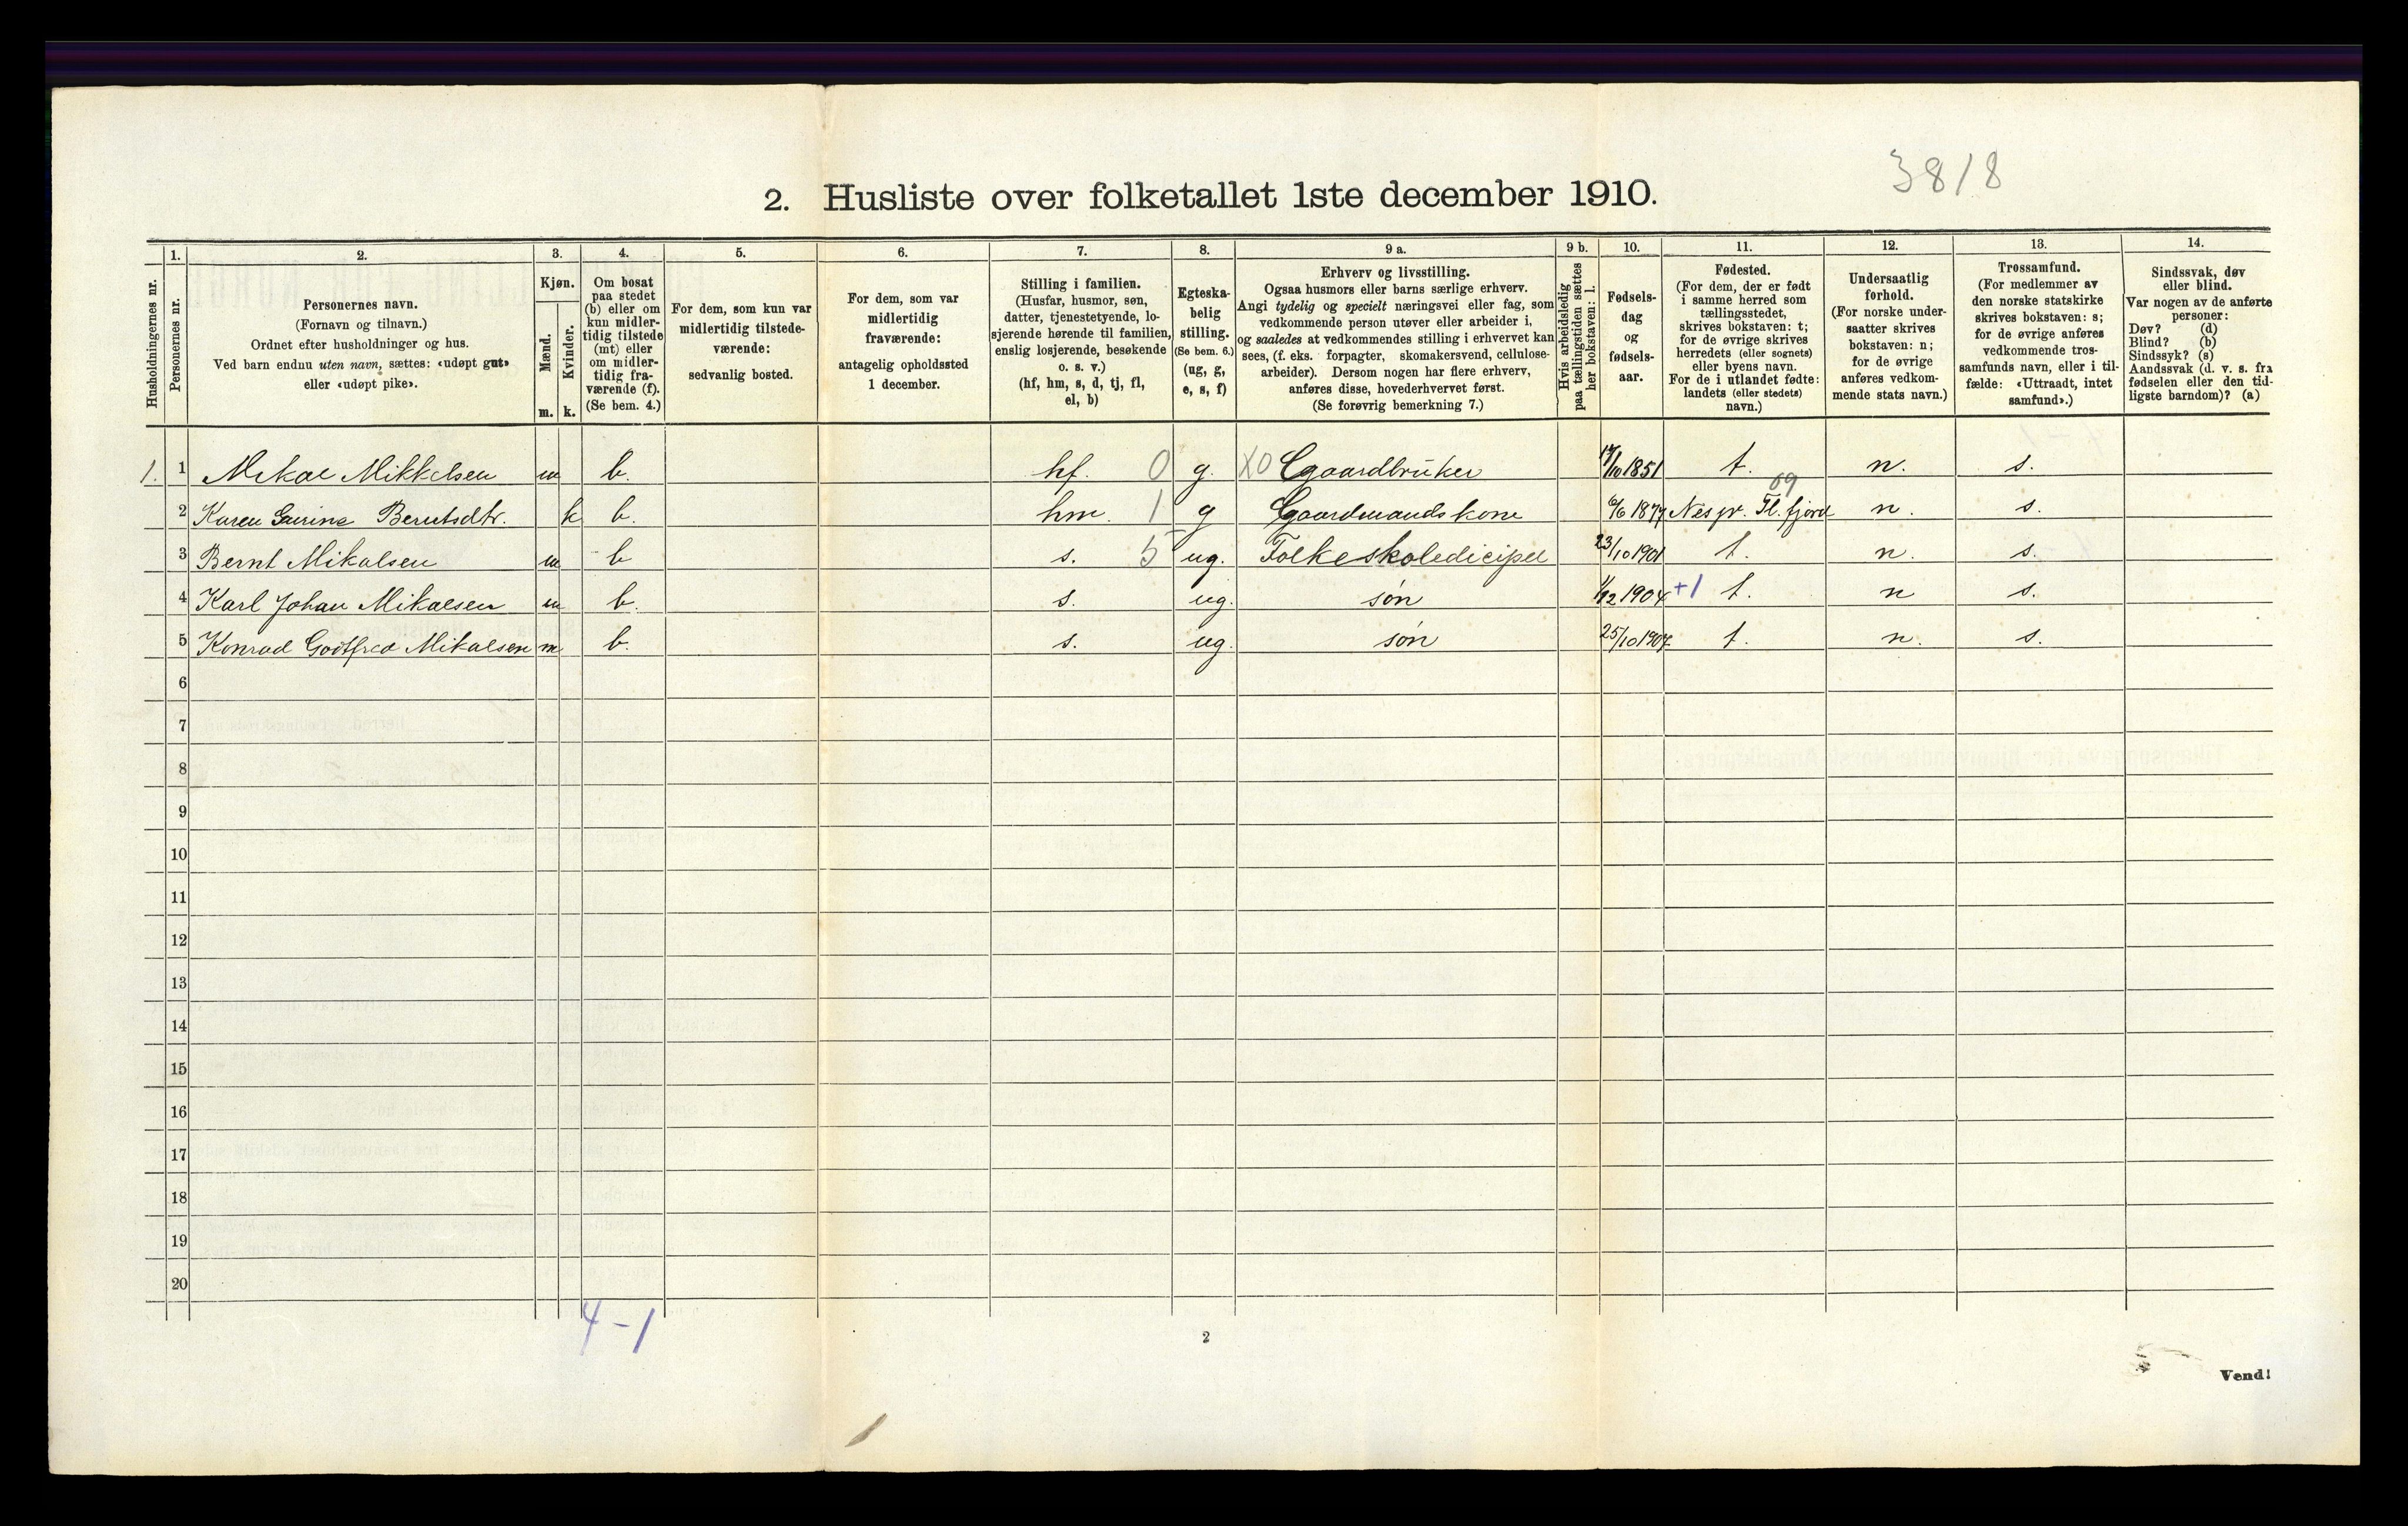 3818
2. Husliste over folketallet 1ste december 1910.
Husholdningernes nr.
1.
Personernes nr.
2.
Personernes navn.
(Fornavn og tilnavn.)
Ordnet efter husholdninger og hus.
Ved barn endnu uten navn, sættes: «udøpt gut»
eller «udøpt pike».
3.
Kjøn.
Mænd.
Kvinder.
m. k.
4.
Om bosat
paa stedet
(b) eller om
kun midler-
tidig tilstede
(mt) eller
om midler-
tidig fra-
værende (f).
(Se bem. 4.)
5.
For dem, som kun var
midlertidig tilstede-
værende:
sedvanlig bosted.
6.
For dem, som var
midlertidig
fraværende:
antagelig opholdssted
1 december.
7.
Stilling i familien.
(Husfar, husmor, søn,
datter, tjenestetyende, lo-
sjerende hørende til familien,
enslig losjerende, besøkende
o. s. v.)
(hf, hm, s, d, tj, fl,
el, b)
8.
Egteska-
belig
stilling.
(Se bem. 6.)
(ug, g,
e, s, f)
9 a.
Erhverv og livsstilling.
Ogsaa husmors eller barns særlige erhverv.
Angi tydelig og specielt næringsvei eller fag, som
vedkommende person utøver eller arbeider i,
og saaledes at vedkommendes stilling i erhvervet kan
sees, (f. eks. forpagter, skomakersvend, cellulose-
arbeider). Dersom nogen har flere erhverv,
anføres disse, hovederhvervet først.
(Se forøvrig bemerkning 7.)
9 b.
Hvis arbeidsledig
paa tællingstiden sættes
her bokstaven: l.
10.
Fødsels-
dag
og
fødsels-
aar.
11.
Fødested.
(For dem, der er født
i samme herred som
tællingsstedet,
skrives bokstaven: t;
for de øvrige skrives
herredets (eller sognets)
eller byens navn.
For de i utlandet fødte:
landets (eller stedets)
navn.)
12.
Undersaatlig
forhold.
(For norske under-
saatter skrives
bokstaven: n;
for de øvrige
anføres vedkom-
mende stats navn.)
13.
Trossamfund.
(For medlemmer av
den norske statskirke
skrives bokstaven: s;
for de øvrige anføres
vedkommende tros-
samfunds navn, eller i til-
fælde: «Uttraadt, intet
samfund».)
14.
Sindssvak, døv
eller blind.
Var nogen av de anførte
personer:
Døv? (d)
Blind? (b)
Sindssyk? (s)
Aandssvak (d. v. s. fra
fødselen eller den tid-
ligste barndom)? (a)
1. 1 Mikal Mikkelsen m b. hf. 0 g. X0 Gaardbruker 1851 t. n. s.
2 Karen Berntsdtr. k b. hm. 1 g Gaardmandskone 6/6 1877 Nes pr. Fl. fjord 09 n. s.
3 Bernt Mikalsen m b s. 5 ug. Folkeskoledicipel 23/10 1901 t. n. s.
4 Karl Johan Mikalsen m b. s. ug. søn 1/12 1904 +1 t. n s.
5 Konrad Godtfred Mikalsen m b. s. ug. søn 25/10 1907 t. n. s.
6
7
8
9
10
11
12
13
14
15
16
17
18
19
20
4-1
2
Vend!